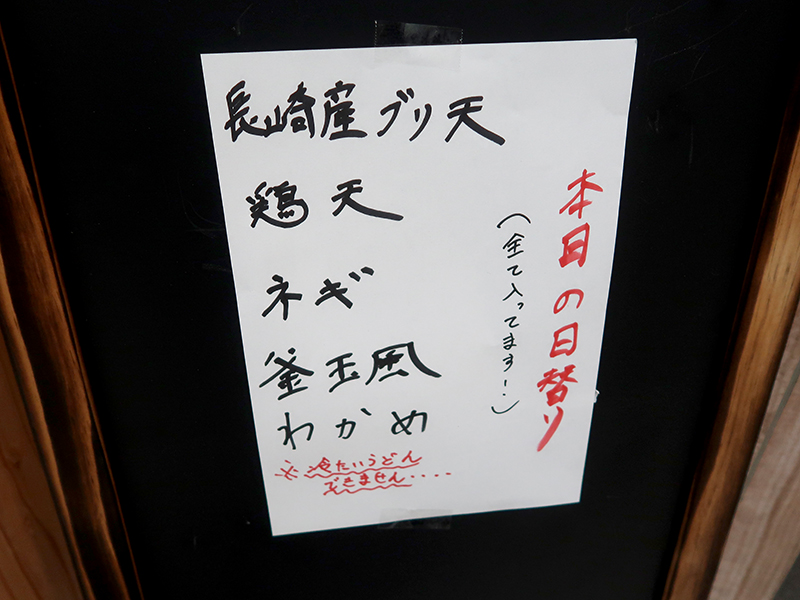 本日の日替り
(全て入ってます!)
長崎産ブリ天
鶏天
ネギ
釜玉風
わかめ
※冷たいうどん
できません····